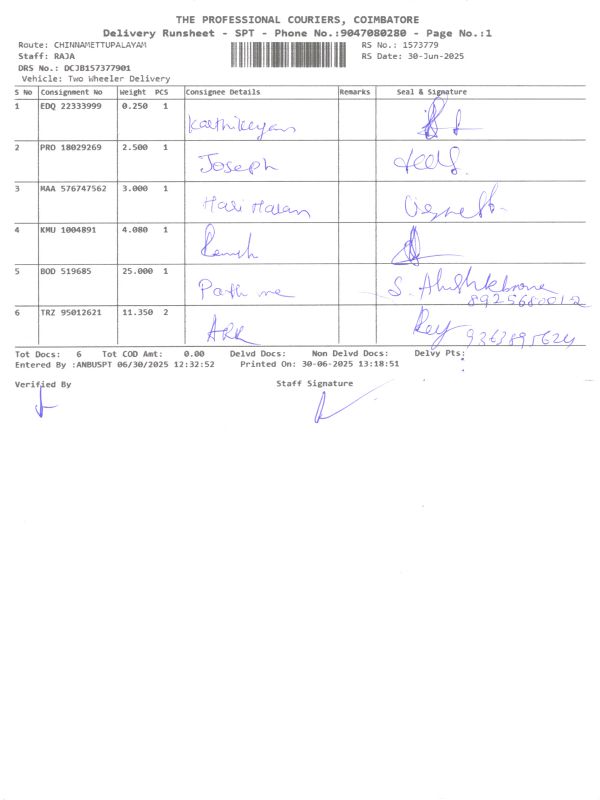 THE PROFESSIONAL COURIERS, COIMBATORE
Delivery Runsheet - SPT - Phone No.:9047080280 - Page No.:1
Route: CHINNAMETTUPALAYAM RS No.: 1573779
Staff: RAJA RS Date: 30-Jun-2025
DRS No.: DCJB157377901
Vehicle: Two Wheeler Delivery
S No Consignment No Weight PCS Consignee Details Remarks Seal & Signature
1 EDQ 22333999 0.250 1
Karthikeyan
2 PRO 18029269 2.500 1
Joseph
3 MAA 576747562 3.000 1
Hari Haran
4 KMU 1004891 4.080 1
Ramesh
5 BOD 519685 25.000 1
8925680012
6 TRZ 95012621 11.350 2
ARK 9363895624
Tot Docs: 6 Tot COD Amt: 0.00 Delvd Docs: Non Delvd Docs: Delvy Pts:
Entered By :ANBUSPT 06/30/2025 12:32:52 Printed On: 30-06-2025 13:18:51
Verified By Staff Signature